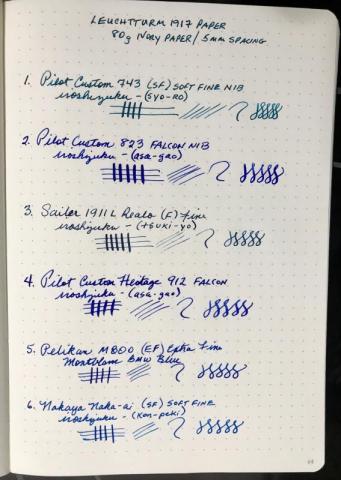 LEUCHTTURM 1917 PAPER
80g IVORY PAPER / 5mm SPACING
1. Pilot Custom 743 (SF) SOFT FINE NIB
iroshizuku - (syo-ro)
2. Pilot Custom 823 FALCON NIB
iroshizuku - (asa-gao)
3. Sailor 1911 L Realo (F) Fine
iroshizuku - (tsuki-yo)
4. Pilot Custom Heritage 912 FALCON
iroshizuku - (asa-gao)
5. Pelikan M800 (EF) Extra Fine
Montblanc BMW Blue
6. Nakaya Naka-ai (SF) SOFT FINE
iroshizuku - (Kon-peki)